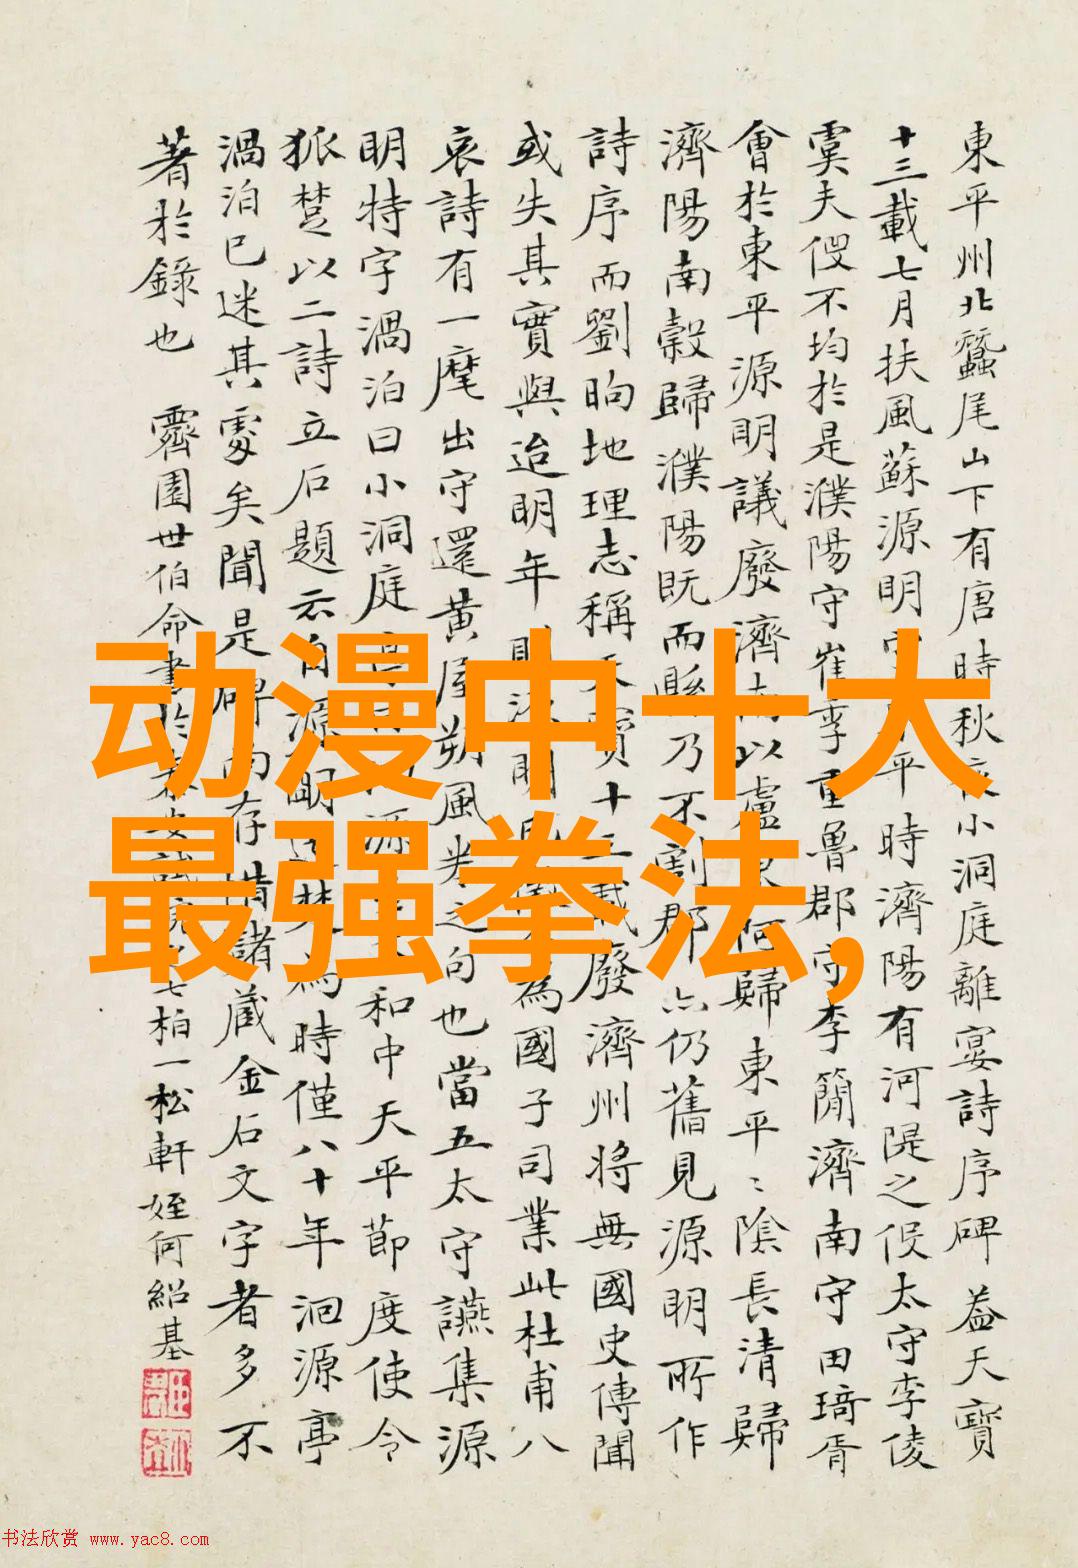 東平州北蠶尾山下有唐時秋夜小洞庭離宴詩序碑 蓋天寶
十三載七月扶風蘇源明守東平時濟陽有河隄之役太守李倰
虞夫役不均於是濮陽守崔季重魯郡守李簡濟南守田琦胥
會於東平源明議廢濟南以盧東何歸東平:陰長清歸
濟陽南穀歸濮陽既而縣乃不割郡亦仍舊見源明所作
詩序而劉昫地理志稱天寶十三載廢濟州將無國史傳聞
或失其實與迨明年明為國子司業此杜甫八
哀詩有一麾出守還黃屋朔風卷之句也當五太守讌集源
明特字渦泊曰小洞庭和中天平節度使令
狐楚以二詩立石題云自源明楚為時僅八十年洄源亭
渦泊已迷其處矣聞是碑尚存惜諸藏金石文字者多不
著於錄也 霽園世伯命書於七柏一松軒 姪何紹基
動漫中十大
最强拳法,
书法欣赏 www.yac8.com